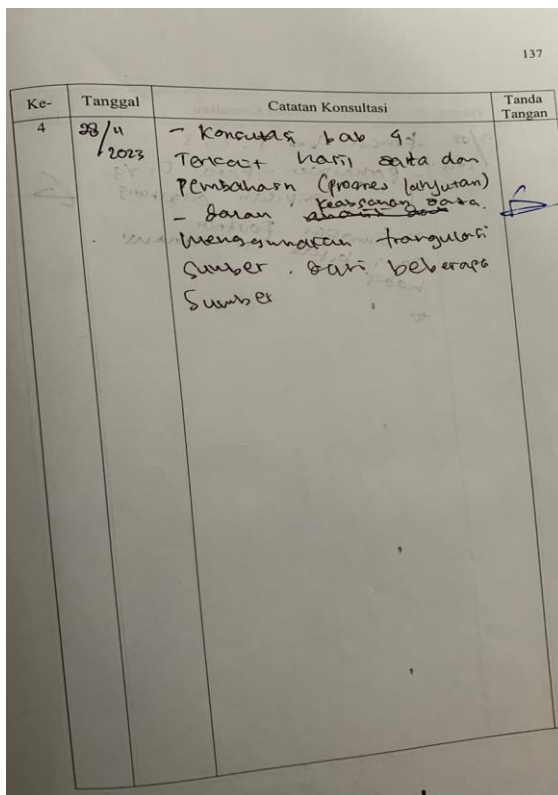 137
Ke- Tanggal Catatan Konsultasi Tanda Tangan
4 28/11 2023 - Konsultasi bab 4.
Terkait hasil data dan
Pembahasn (progres lanjutan)
- dalam keabsahan data.
menggunakan trangulasi
Sumber. dari beberapa
Sumber